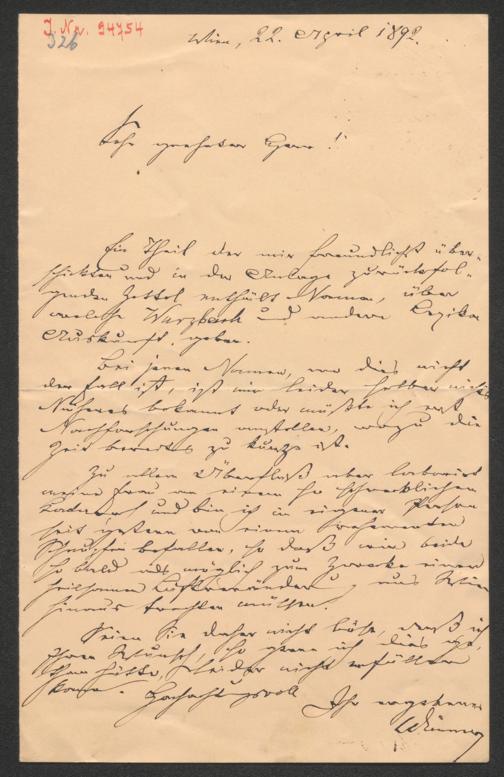 J. Nr. 94754
326
Wien, 22. April 1892.
Sehr geehrter Herr!
Ein Theil der mir freundlichst über-
schickten und in der Anlage zurückfol-
genden Zettel enthält Namen, über
welche Wurzbach und andere Lexika
Auskunft geben.
Bei jenen Namen, wo dies nicht
der Fall ist, ist mir leider selber nichts
Näheres bekannt oder müßte ich erst
Nachforschungen anstellen, wozu die
Zeit bereits zu kurz ist.
Zu allem Überfluß aber laborirt
meine Frau an einem so schrecklichen
und bin ich in eigener Person
seit gestern von einem
Schnupfen befallen, so daß wir beide
so bald als möglich zum Zwecke einer
heilsamen Luftveränderung uns
hinaus trachten müssen.
Seien Sie daher nicht böse, daß ich
Ihren Wunsch, so gern ich dies ge-
than hätte, leider nicht erfüllen
kann. Hochachtungsvoll
Ihr ergebener